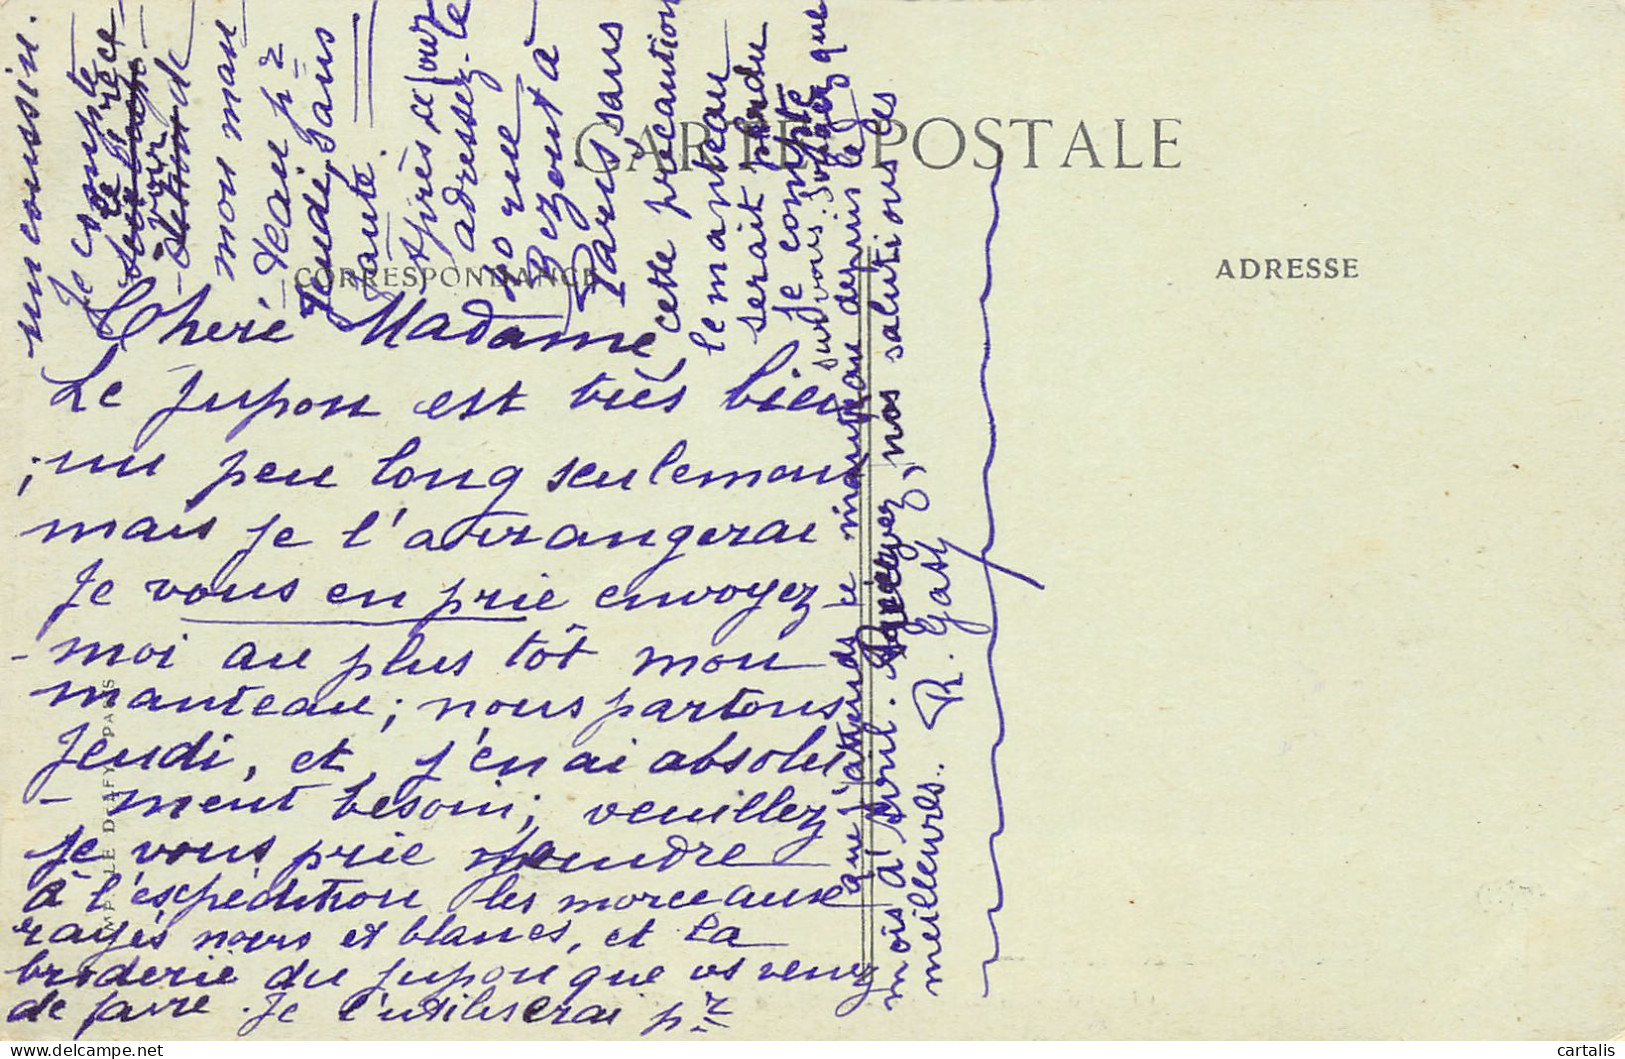 CARTE POSTALE
CORRESPONDANCE
ADRESSE
Chère Madame,
Le jupon est très bien
, un peu long seulemen
mais je l'arrangerai
Je vous en prie envoyez
- moi au plus tôt mon
manteau ; nous partons
Jeudi, et j'en ai absolu
- ment besoin ; veuillez
je vous prie joindre
à l'expédition les morceaux
rayés noirs et blancs, et la
broderie du jupon que vs venez
de faire. Je l'utiliserai pr
un coussin.
Je compte
recevoir
mon man
- teau pr
Jeudi, sans
faute.
Après ce jour
adressez-le
rue
Bezout à
Paris sans
cette précaution
le manteau
serait perdu
je compte
sur vous. Songez que
que j'attends ce manteau depuis le
mois d'Avril. Recevez, nos salutions les
meilleures. R. Gasly
IMP. LE DELEY, PARIS
cartalis